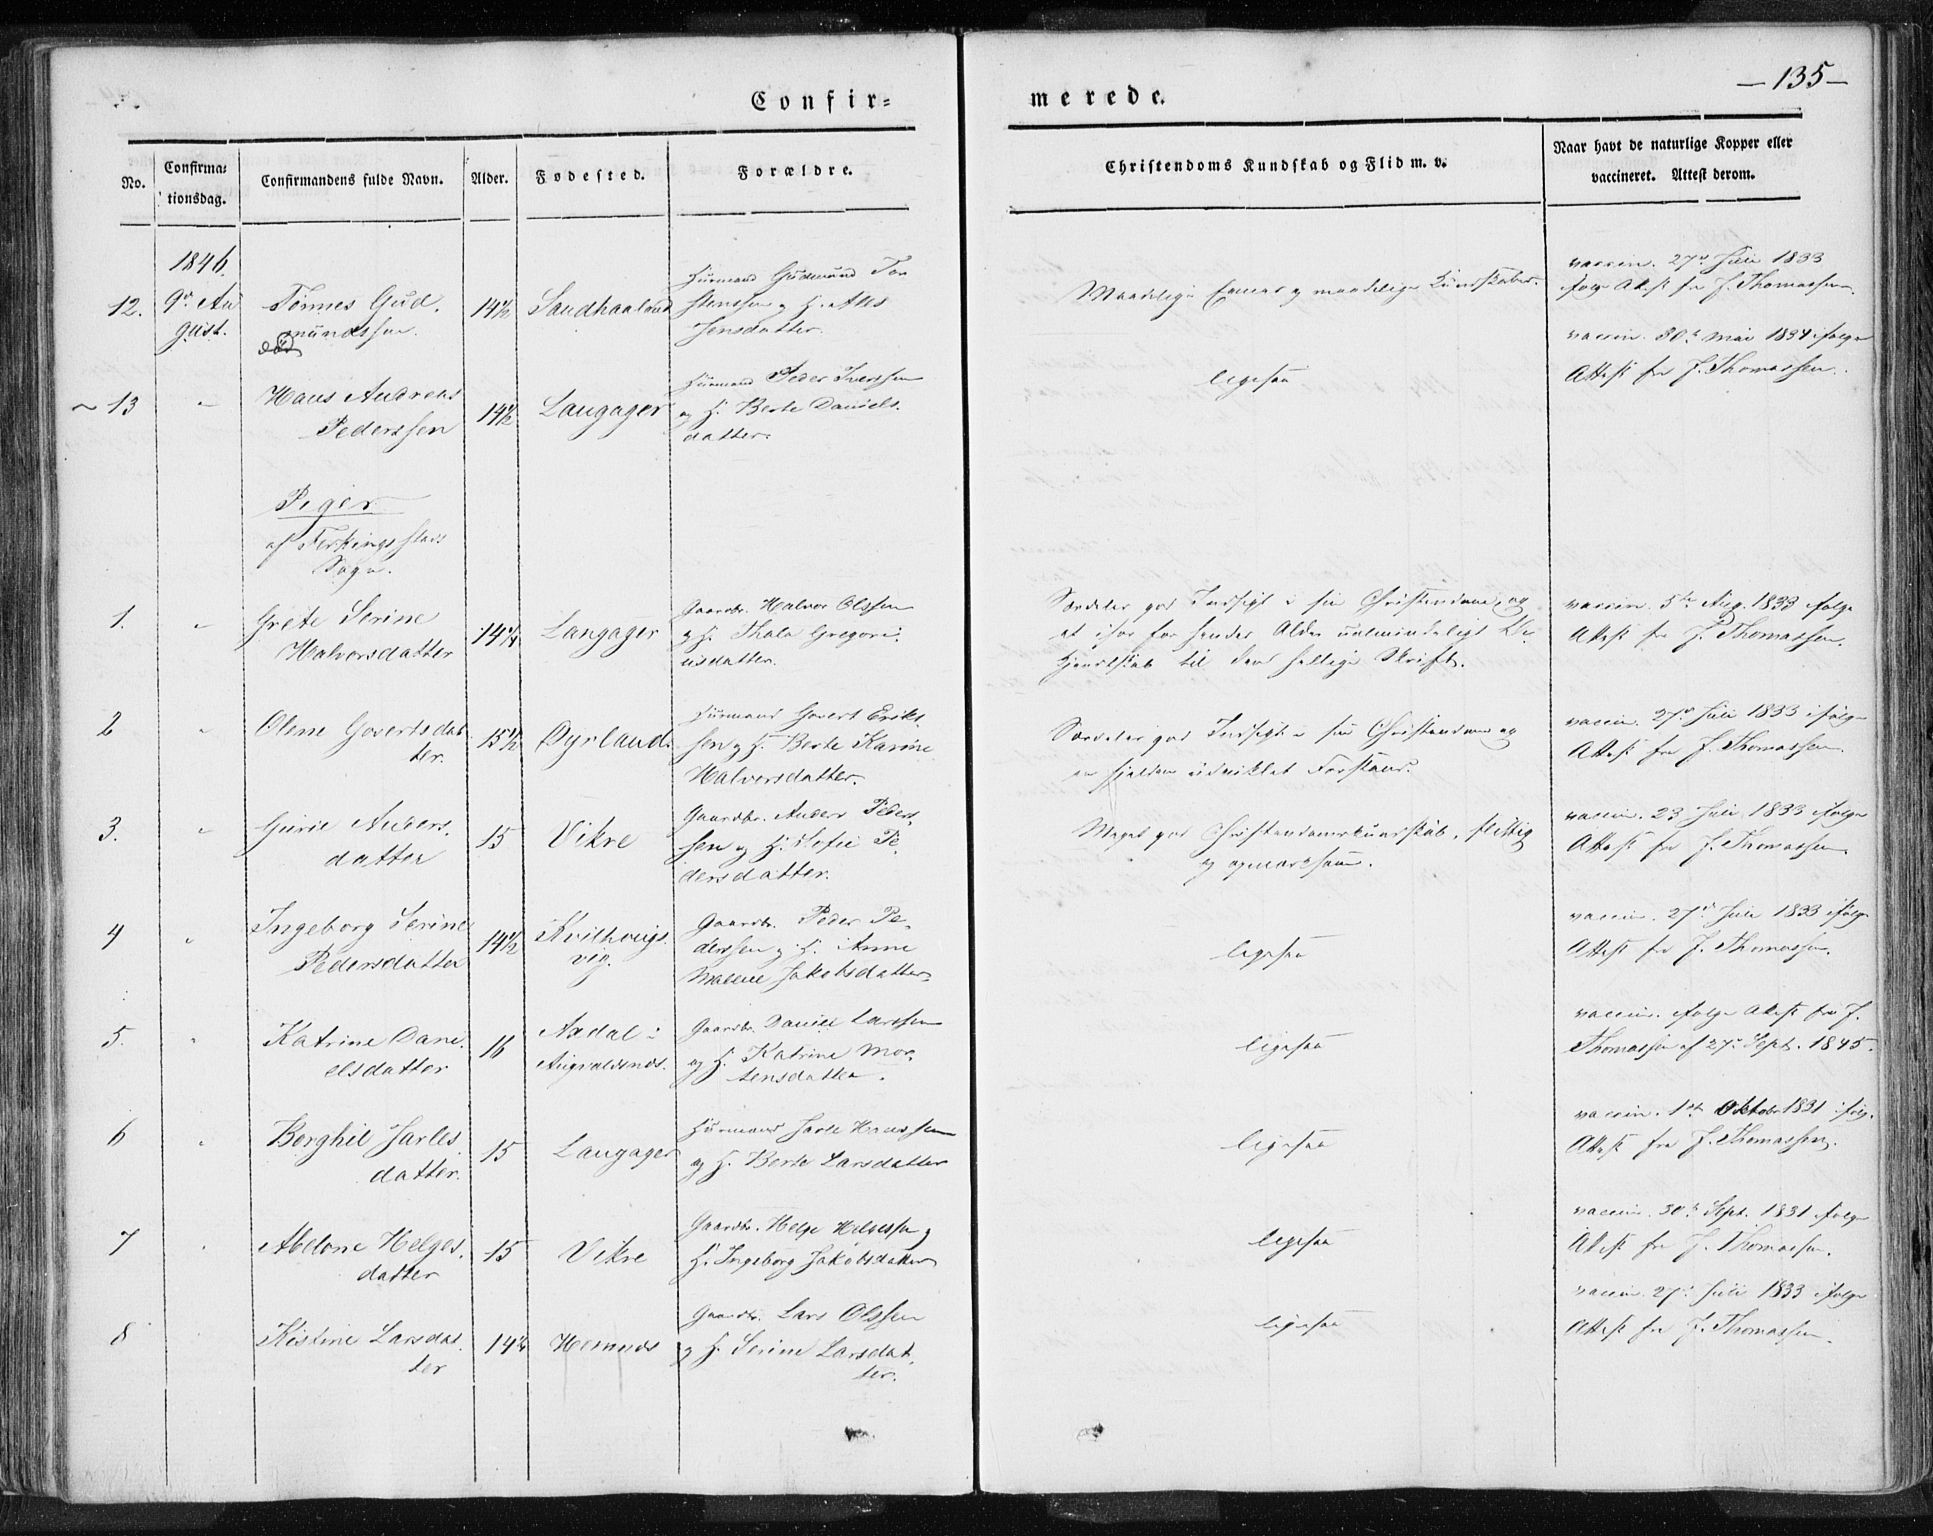 Confir=
merede.
—135—
No.
Confirma=
tionsdag.
Confirmandens fulde Navn.
Alder.
Fødested.
Forældre.
Christendoms Kundskab og Flid m. v.
Naar havt de naturlige Kopper eller
vaccineret. Attest derom.
1846.
12.
9de Au
gust.
Tönnes Gud,
mundssen.
død
14½
Sandhaaland
Huusmand Gudmund Tor
stenssen og H.
Jensdatter.
Maadelige Evner og maadelige Kundskaber.
vaccin. 27de Juli 1833
ifølge Attest fra J. Thomassen.
~ 13
"
Hans Andreas
Pederssen
14½
Langager
Huusmand Peder Iverssen
og H. Berte Daniels,
datter.
ligesaa
vaccin. 30te Mai 1834 ifølge
Attest fra J. Thomassen.
Piger
af Ferkingstads
Sogn.
1.
"
Grete Serine
Halvorsdatter
14¼
Langager
Gaardbr. Halvor Olssen
og H. Thala Gregori,
usdatter.
Særdeles god Indsigt i sin Christendom, og
et især for hendes Alder ualmindeligt Be,
kjendtskab til den hellige Skrift.
vaccin. 5te Aug. 1833 ifølge
Attest fra J. Thomassen.
2
"
Olene Govertsdat
ter.
15½
Øyrland.
Huusmand Govert Eriks,
sen og H. Berte Karine
Halvorsdatter.
Særdeles god Indsigt i sin Christendom og
en sjelden udviklet Forstand.
vaccin. 27de Juli 1833 ifølge
Attest fra J. Thomassen.
3.
"
Gurie Anders,
datter
15
Vikre
Gaardbr. Anders Peders,
sen og H. Sofie Pe,
dersdatter.
Meget god Christendomskundskab, flittig
og opmærksom.
vaccin. 23 Juli 1833 ifølge
Attest fra J. Thomassen.
4
"
Ingeborg Serine
Pedersdatter
14½
Kvilhougs,
vig.
Gaardbr. Peder Pe,
derssen og H. Anne
Malene Jakobsdatter.
ligesaa
vaccin. 27de Juli 1833 ifølge
Attest fra J. Thomassen.
5.
"
Katrine Dani,
elsdatter
16
Axdal i
Augvaldsnæs.
Gaardbr. Daniel Larssen
og H. Katrine Mor,
tensdatter.
ligesaa
vaccin. ifølge Attest fra J.
Thomassen af 27de Sept. 1845.
6
"
Borghil Jarles
datter.
15
Langager
Huusmand Jarle Hanssen
og H. Berte Larsdatter
ligesaa
vaccin. 1ste Oktobr 1831 ifølg.
Attest fra J. Thomassen.
7
"
Abelone Helges,
datter
15
Vikre
Gaardbr. Helge Helgessen og
H. Ingeborg Jakobsdatter
ligesaa
vaccin. 30te Sept. 1831 ifølge
Attest fra J. Thomassen.
8
Kistine Larsdat,
ter
14¼
Hemnæs
Gaardbr. Lars Olssen
og H. Serine Larsdat,
ter.
ligesaa
vaccin. 27de Juli 1833 ifølge
Attest fra J. Thomassen.